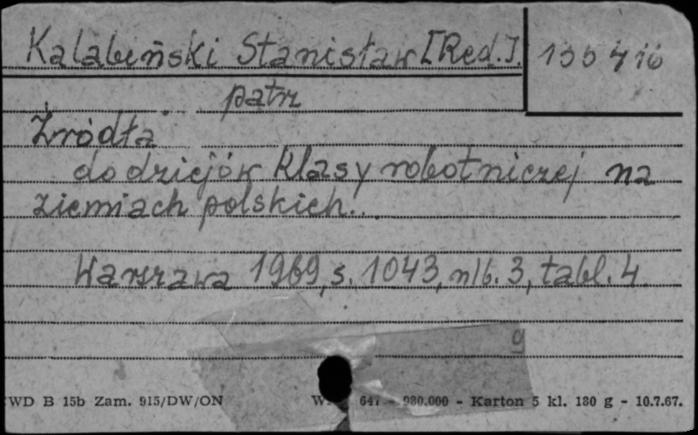 Kalabiński Stanisław [Red.].
155416
patrz
Źródła
do dziejów klasy robotniczej na
ziemiach polskich...
Warszawa 1969, s. 1043, nlb. 3, tabl. 4.
WD B 15b Zam. 915/DW/ON 980.000 - Karton 5 kl. 180 g - 10.7.67.